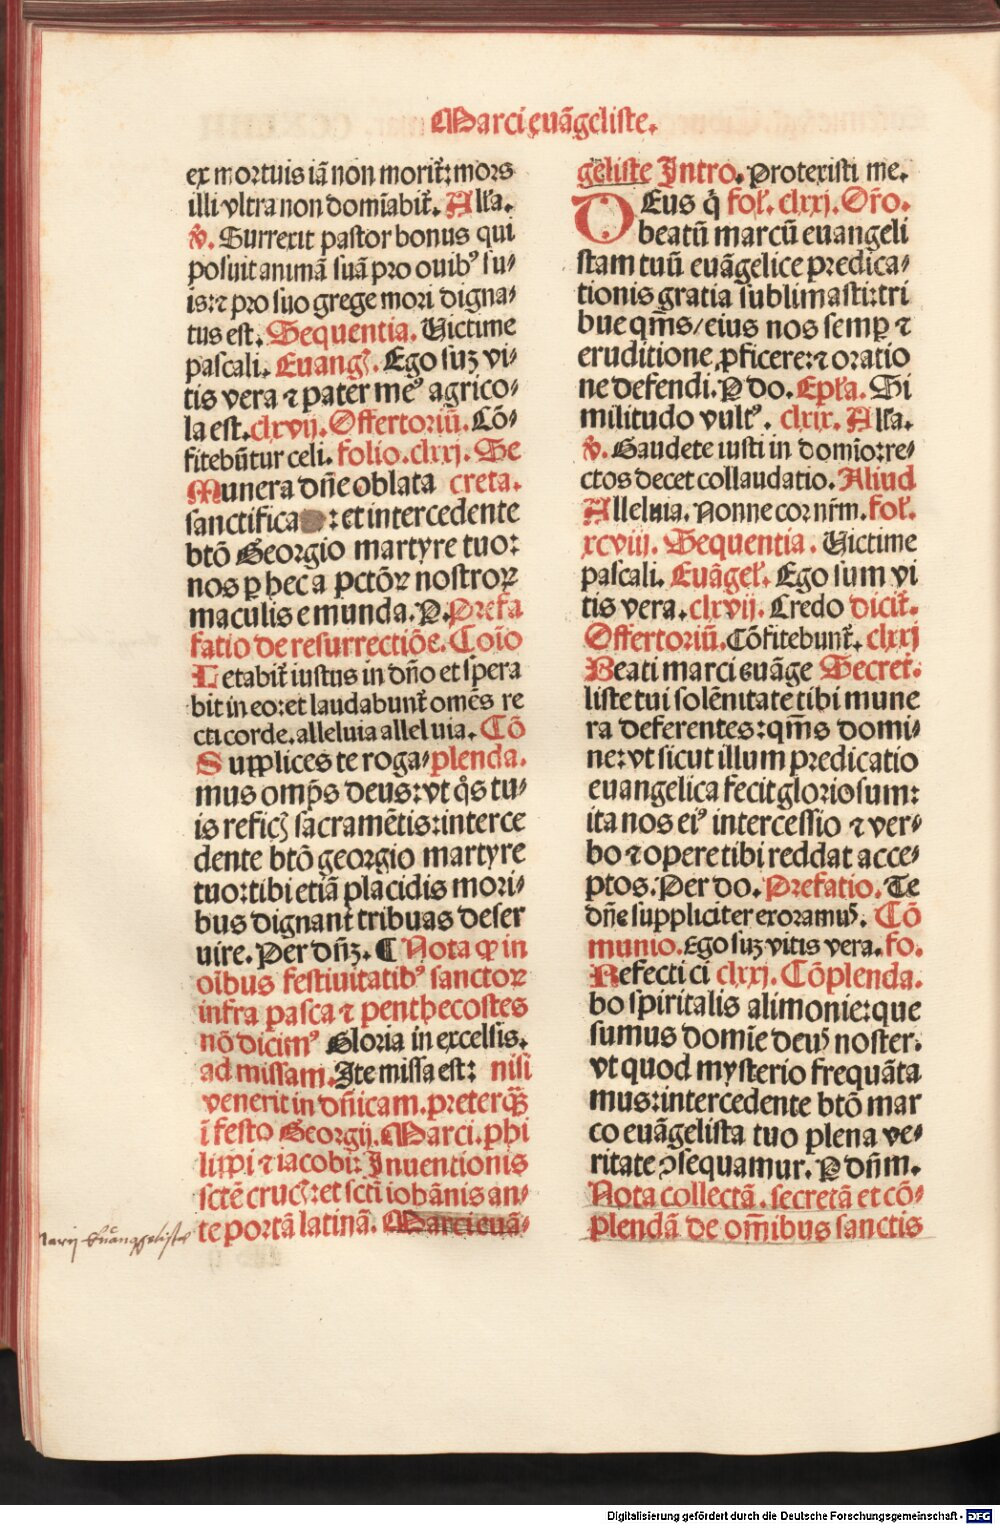 Marci euãgeliste.
ex mortuis iã non morit᷑: mors
illi vltra non domĩabit᷑. Alĺa.
v̾. Surrexit pastor bonus qui
posuit animã suã pro ouibꝰ su⸗
is: ⁊ pro suo grege mori digna⸗
tus est. Sequentia. Victime
pascali. Euangꝭ. Ego suꝫ vi⸗
tis vera ⁊ pater meꝰ agrico⸗
la est. clxvij. Offertoriũ. Cõ⸗
fitebũtur celi. folio. clxxj. Se
Munera dñe oblata creta.
sanctifica : et intercedente
btõ Georgio martyre tuo:
nos ꝑ hec a pctõꝝ nostroꝝ
maculis emunda. P. Prefa
fatio de resurrectiõe. Coĩo
Letabit᷑ iustus in dño et spera
bit in eo: et laudabunt᷑ omẽs re
cti corde. alleluia alleluia. Cõ
Supplices te roga⸗ plenda.
mus omp̃s deus: vt q̊s tu⸗
is reficꝭ sacramẽtis: interce
dente btõ georgio martyre
tuo: tibi etiã placidis mori⸗
bus dignant tribuas deser
uire. Per dñꝫ. ¶ Nota ꝙ in
oĩbus festiuitatibꝰ sanctoꝝ
infra pasca ⁊ penthecostes
nõ dicimꝰ Gloria in excelsis.
ad missam. Ite missa est: nisi
venerit in dñicam. preterꝙ̃
ĩ festo Georgij. Marci. phi
lippi ⁊ iacobi: Inuentionis
sctẽ crucꝭ: et scti iohãnis an⸗
te portã latinã. Marci euã⸗
Marcj Euangeliste
geliste Intro. Protexisti me.
DEus q̇ fol. clxxj. Or̃o.
beatũ marcũ euangeli
stam tuũ euãgelice predica⸗
tionis gratia sublimasti: tri
bue qm̃s/eius nos semꝑ ⁊
eruditione ꝓficere: ⁊ oratio
ne defendi. P do. Epĺa. Si
militudo vultꝰ. clxix. Alĺa.
v̾. Gaudete iusti in domĩo: re⸗
ctos decet collaudatio. Aliud
Alleluia. Nonne cor nr̃m. fol.
xcviij. Sequentia. Victime
pascali. Euãgel. Ego sum vi
tis vera. clxvij. Credo dicit᷑.
Offertoriũ. Cõfitebunt᷑. clxxj
Beati marci euãge Secret᷑.
liste tui solẽnitate tibi mune
ra deferentes: qm̃s domi⸗
ne: vt sicut illum predicatio
euangelica fecit gloriosum:
ita nos eiꝰ intercessio ⁊ ver⸗
bo ⁊ opere tibi reddat acce⸗
ptos. Per do. Prefatio. Te
dñe suppliciter exoramꝰ. Cõ
munio. Ego suꝫ vitis vera. fo.
Refecti ci clxxj. Cõplenda.
bo spiritalis alimonie: que
sumus domĩe deꝰ noster.
vt quod mysterio frequẽta
mus: intercedente btõ mar
co euãgelista tuo plena ve⸗
ritate ꝯsequamur. P dñm.
Nota collectã. secretã et cõ⸗
plendã de om̃ibus sanctis
Digitalisierung gefördert durch die Deutsche Forschungsgemeinschaft - DFG